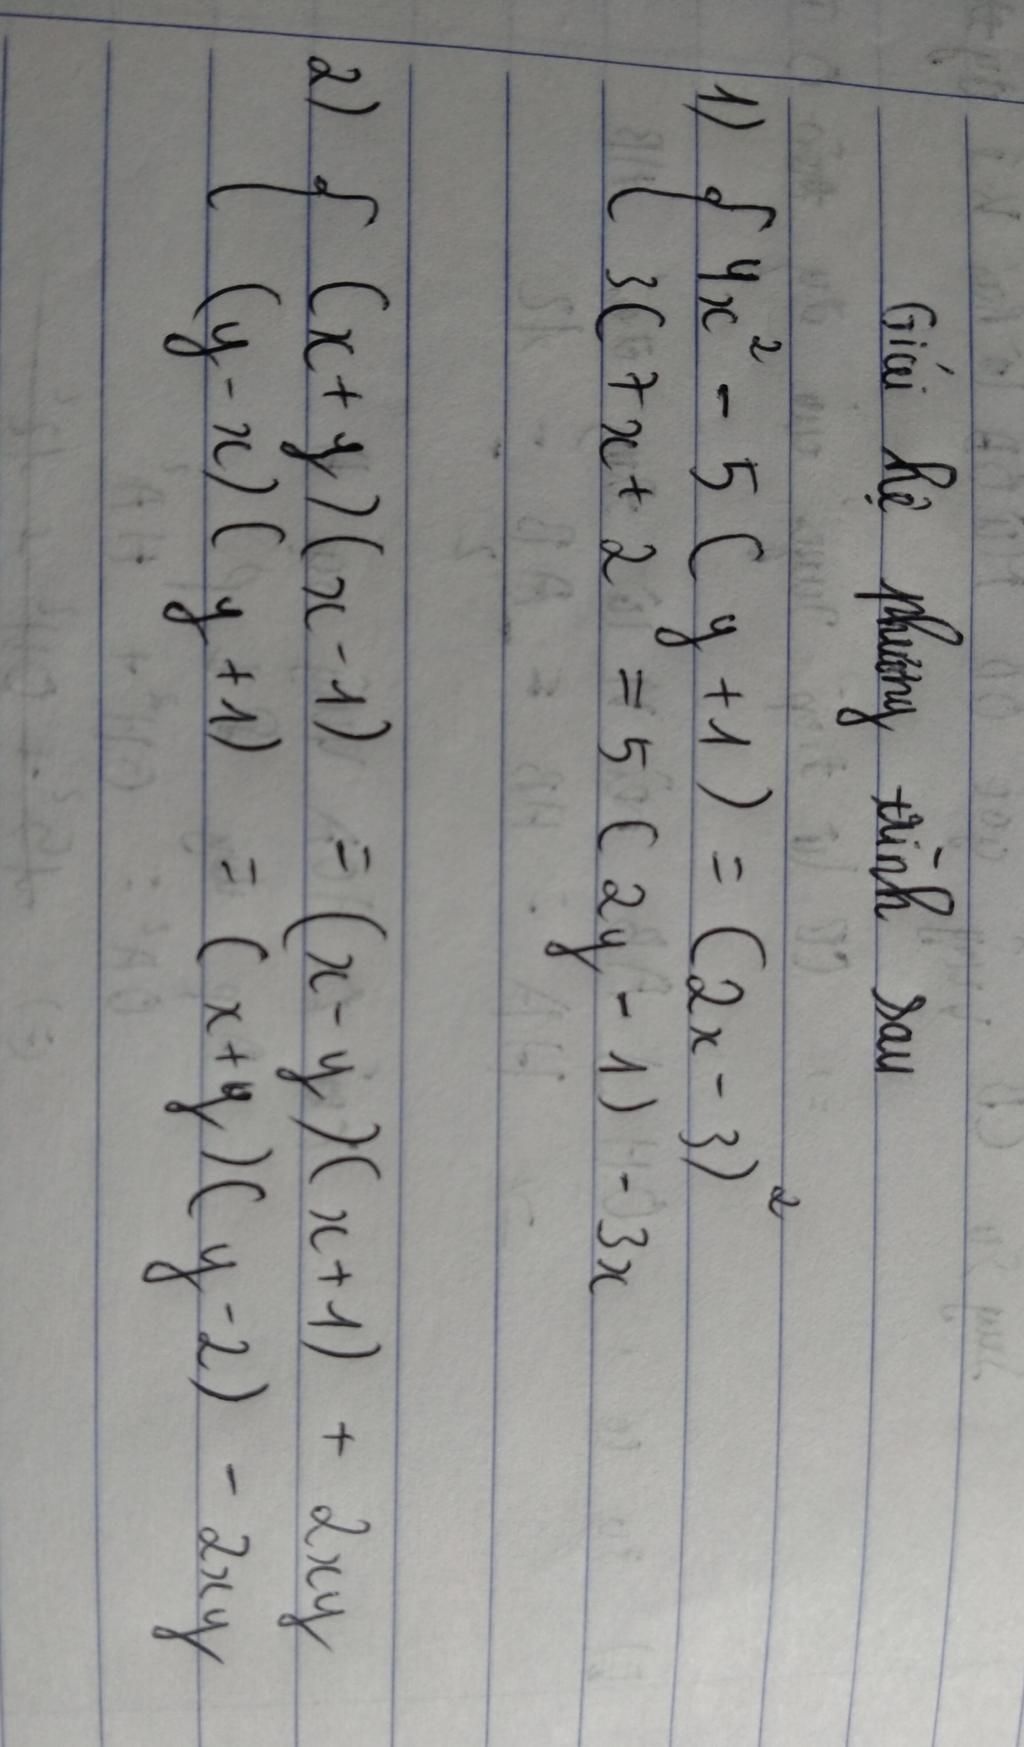 Giải hệ phương trình sau
1) { 4x² - 5(y+1) = (2x-3)²
{ 3(7x+2 = 5(2y-1) -3x
2) { (x+y)(x-1) = (x-y)(x+1) + 2xy
{ (y-x)(y+1) = (x+y)(y-2) - 2xy